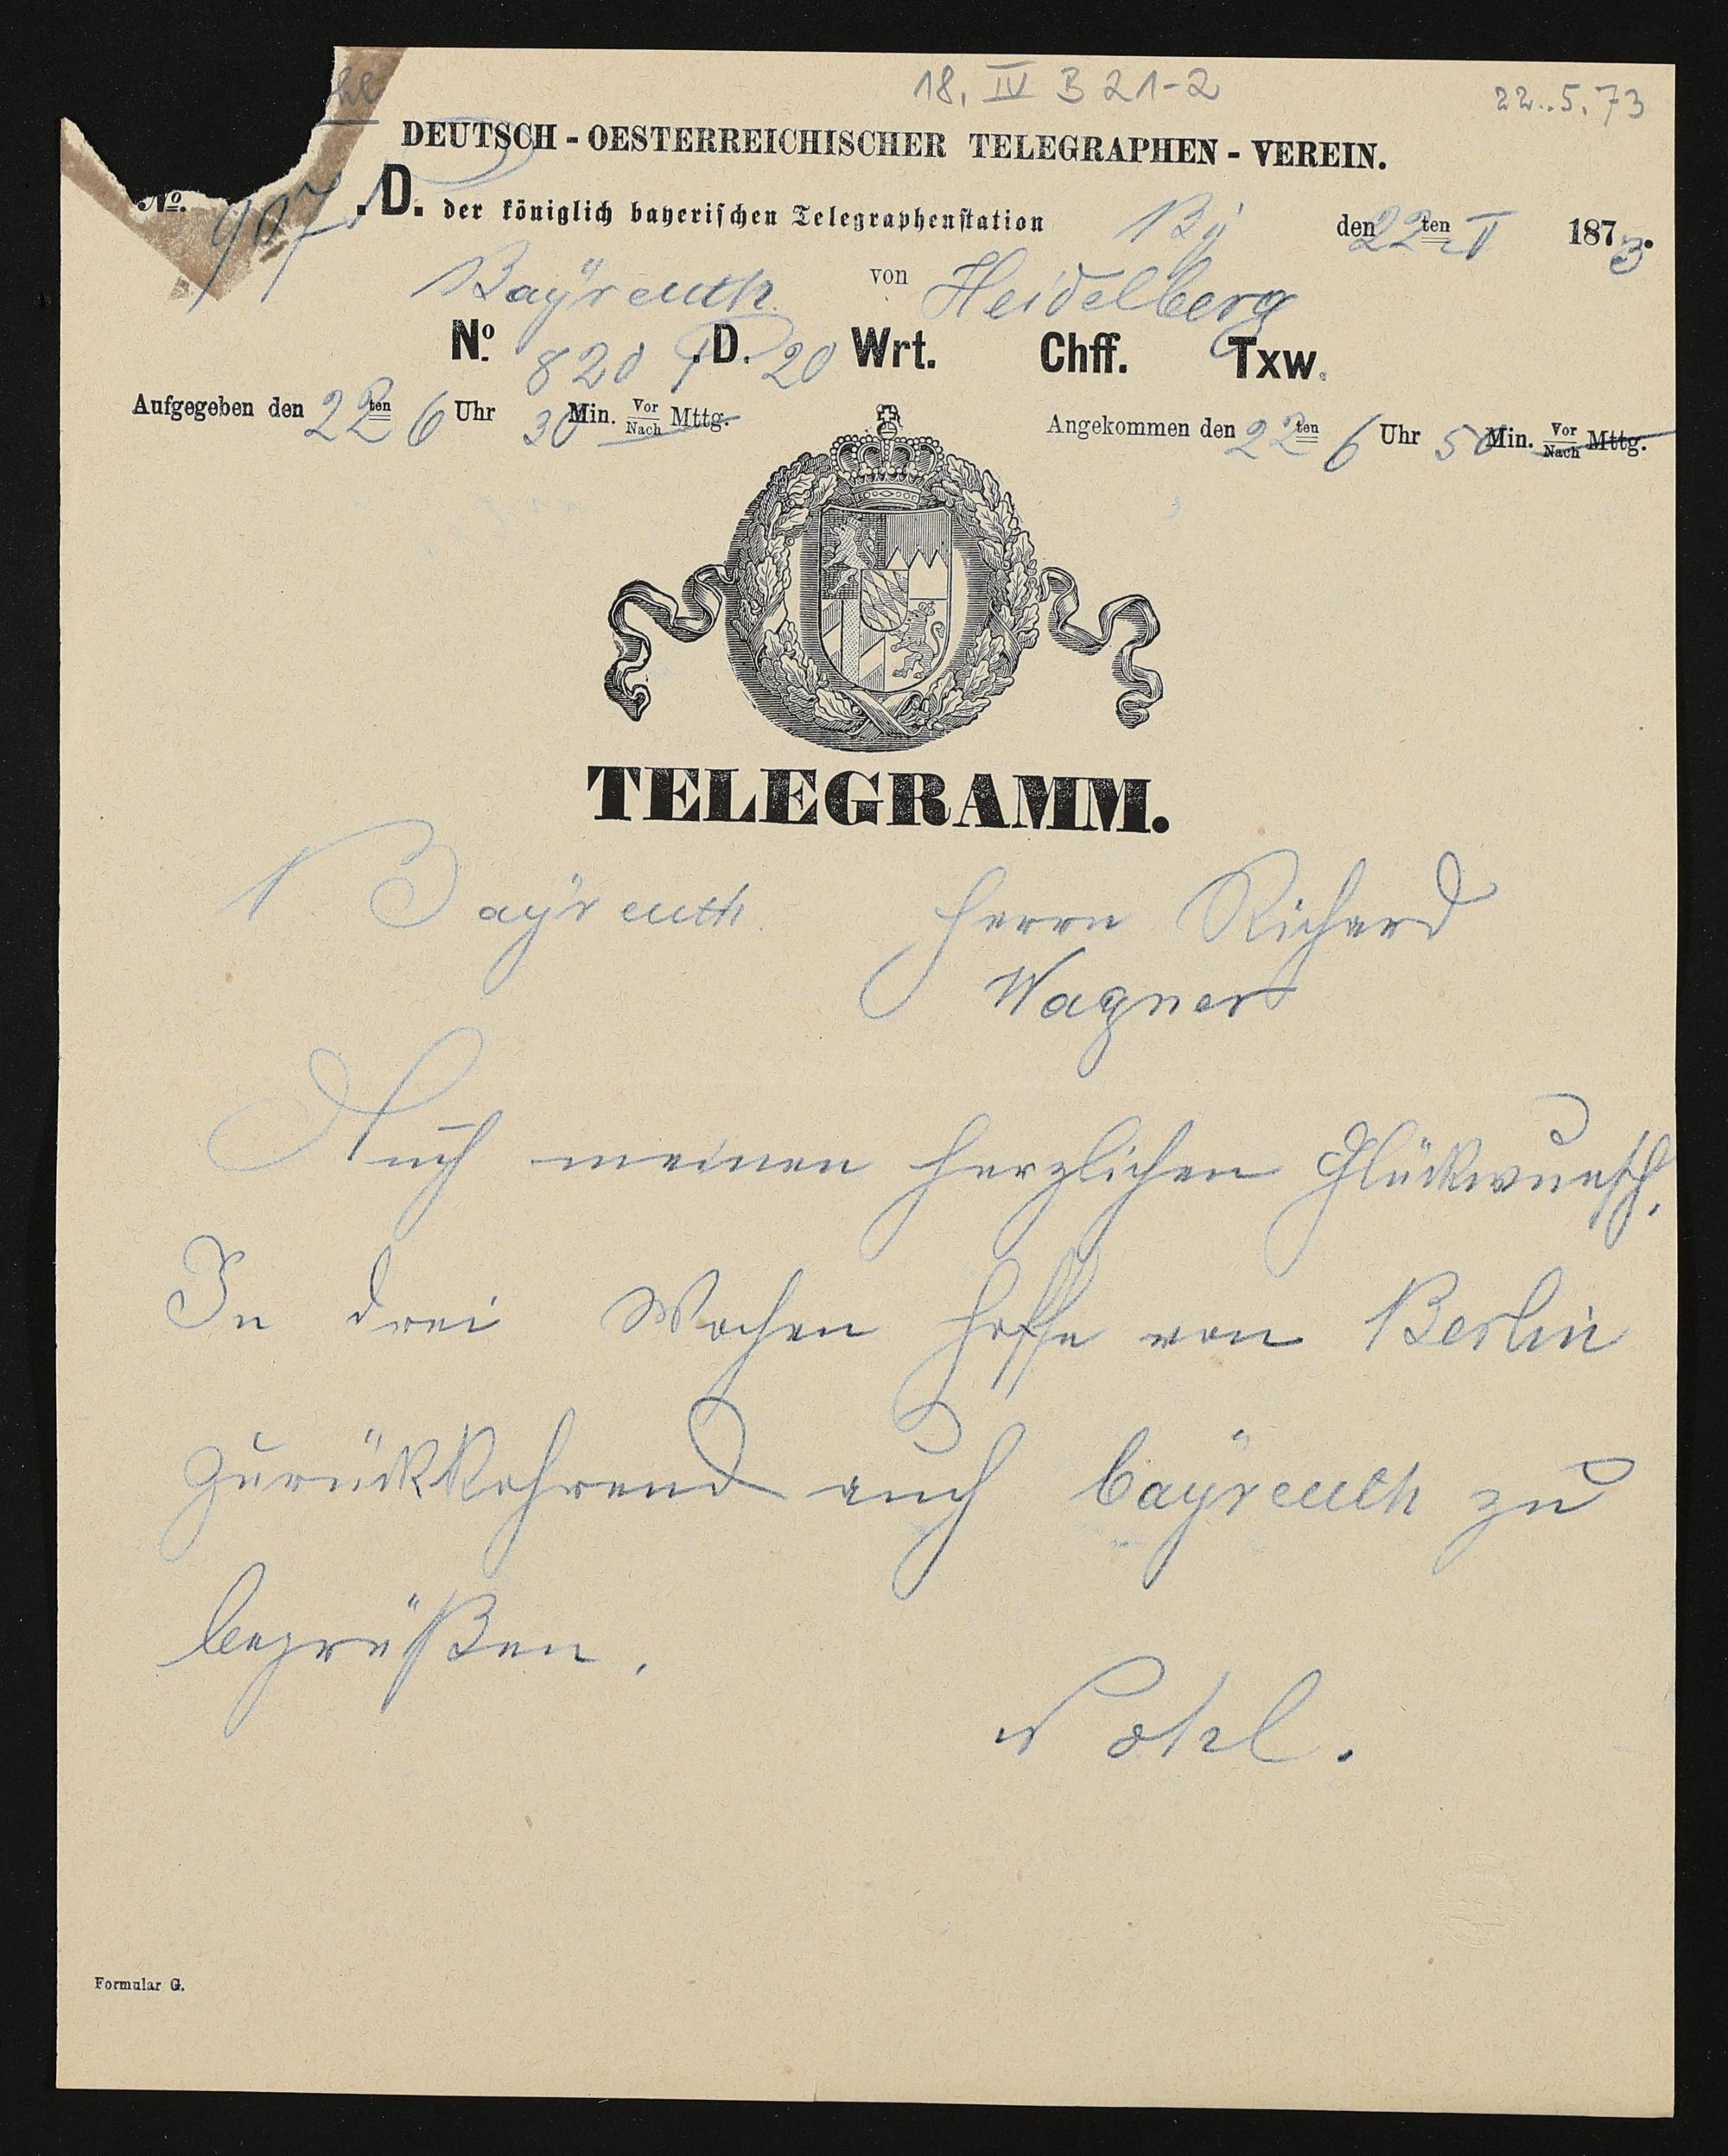 hl
18. IV B 21-2
22..5.73
DEUTSCH - OESTERREICHISCHER TELEGRAPHEN - VEREIN.
No. 907 .D. der königlich bayerischen Telegraphenstation By den 22ten V 1873.
Baÿreuth. von Heidelberg
No. 820 .D. 20 Wrt. Chff. Txw.
Aufgegeben den 22ten 6 Uhr 30 Min. Vor/Nach Mttg.
Angekommen den 22ten 6 Uhr 50 Min. Vor/Nach Mttg.
TELEGRAMM.
Baÿreuth. Herrn Richard
Wagner
Auch meinen herzlichen Glückwunsch.
In drei Wochen hoffe von Berlin
zurückkehrend auch baÿreuth zu
begrüßen.
Nohl.
Formular G.